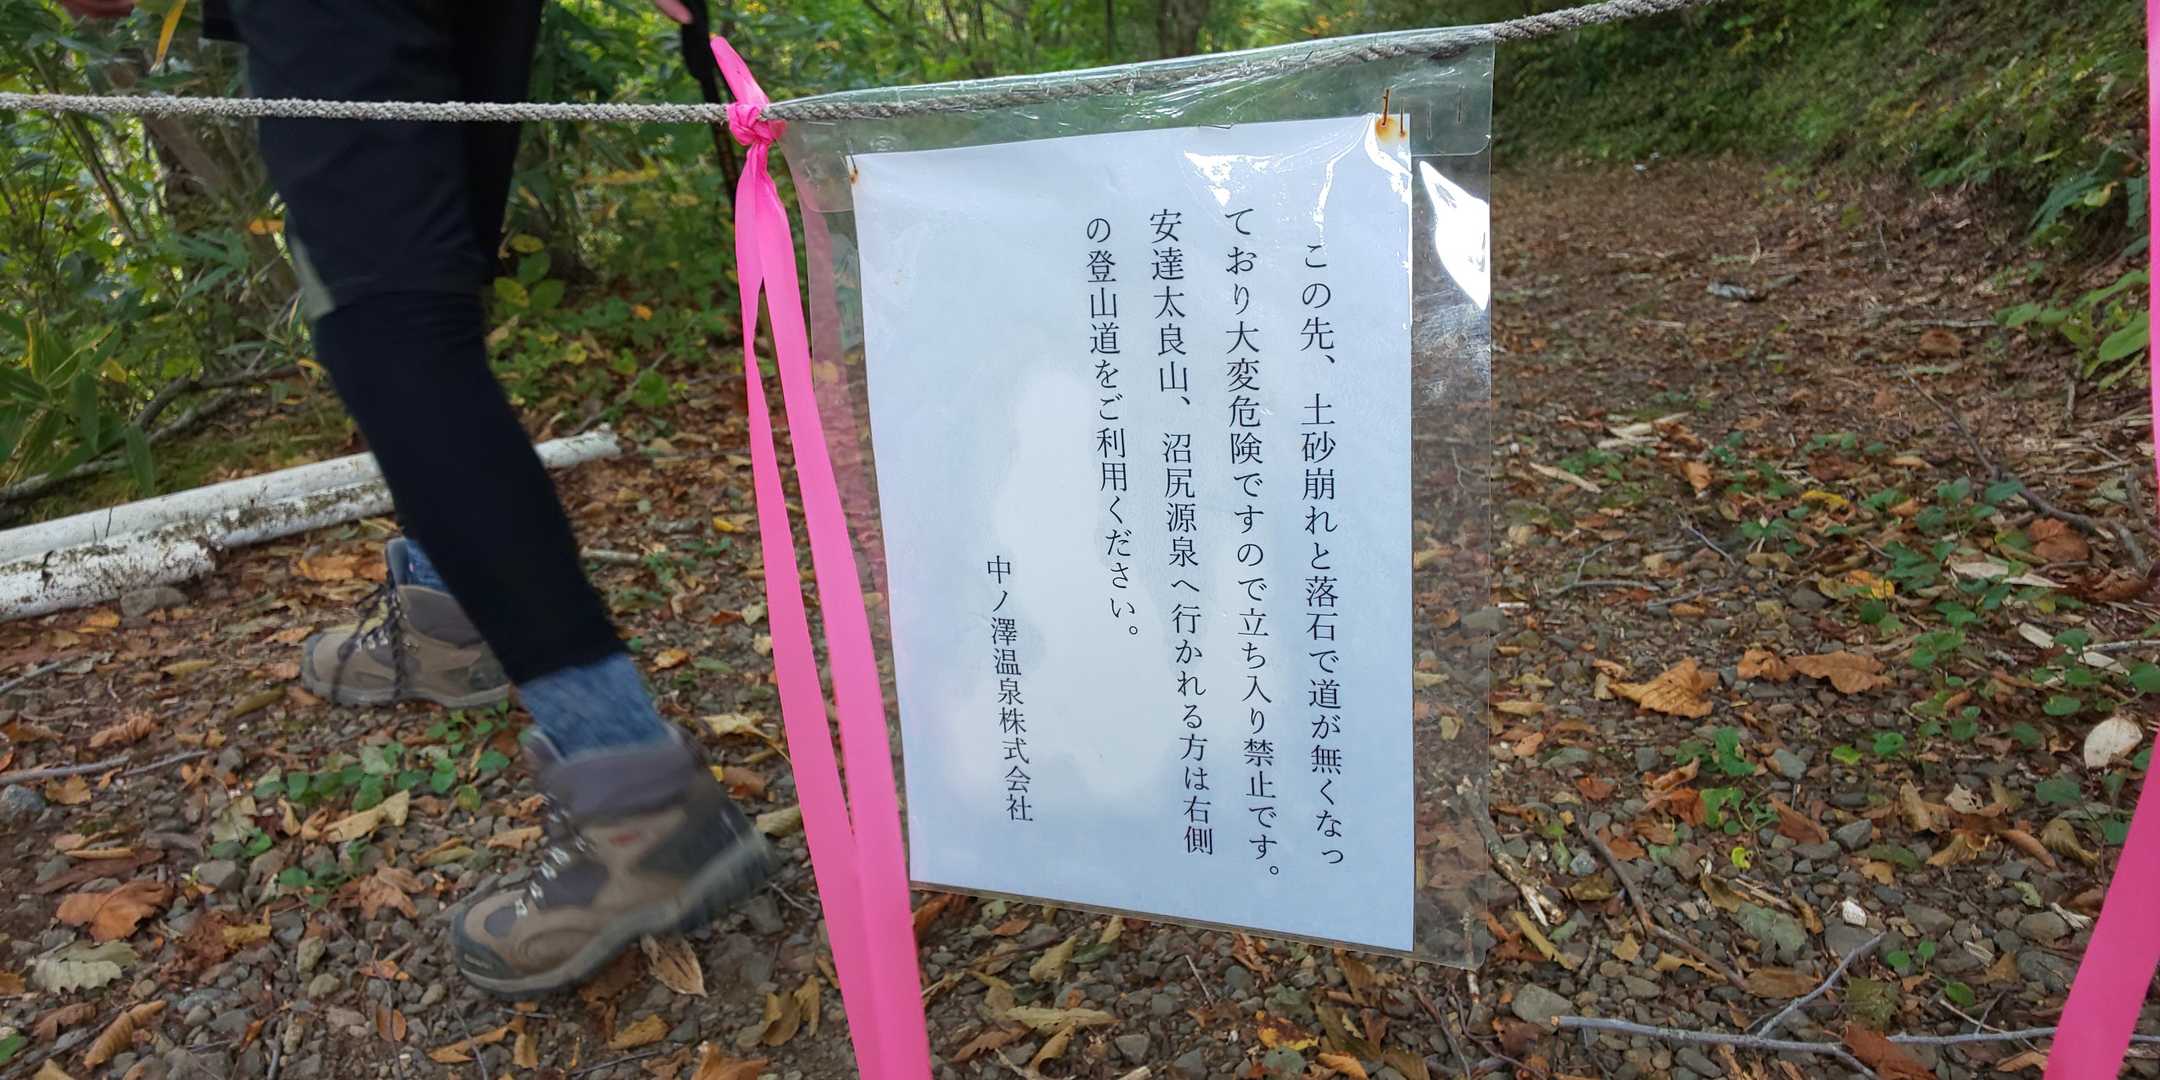 この先、土砂崩れと落石で道が無くなっ
ており大変危険ですので立ち入り禁止です。
安達太良山、沼尻源泉へ行かれる方は右側
の登山道をご利用ください。
中ノ澤温泉株式会社